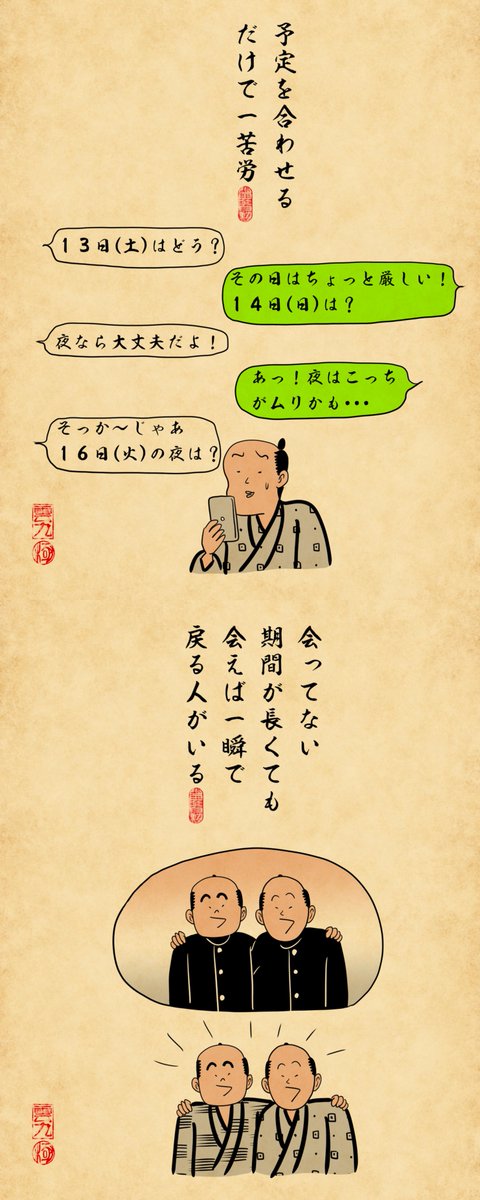 予定を合わせる
だけで一苦労
13日(土)はどう?
その日はちょっと厳しい!
14日(日)は?
夜なら大丈夫だよ!
あっ!夜はこっち
がムリかも・・・
そっか〜じゃあ
16日(火)の夜は?
会ってない
期間が長くても
会えば一瞬で
戻る人がいる